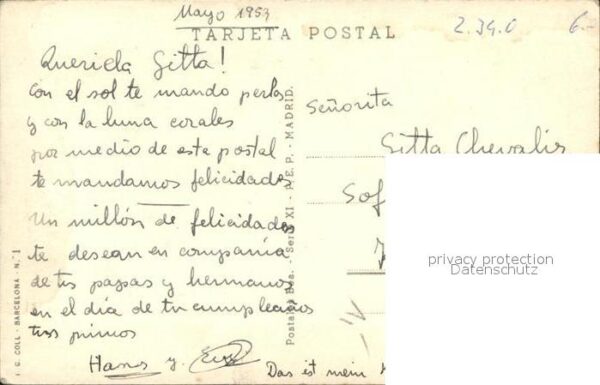 Mayo 1953
TARJETA POSTAL
2.39.0
6.-
Querida Gitta!
Con el sol te mando perlas
y con la luna corales
por medio de esta postal
te mandamos felicidades
Un millón de felicidades
te desean en compania
de tus papas y hermanos
en el día de tu cumpleaños
tus primos
Hanos y
Das ist mein
Señorita
Gitta Chevalis
Sof
1,-
privacy protection
Datenschutz
I. G. COLL - BARCELONA - N.° 1
Postales Bea. - Serie XI - P.E.P. - MADRID.